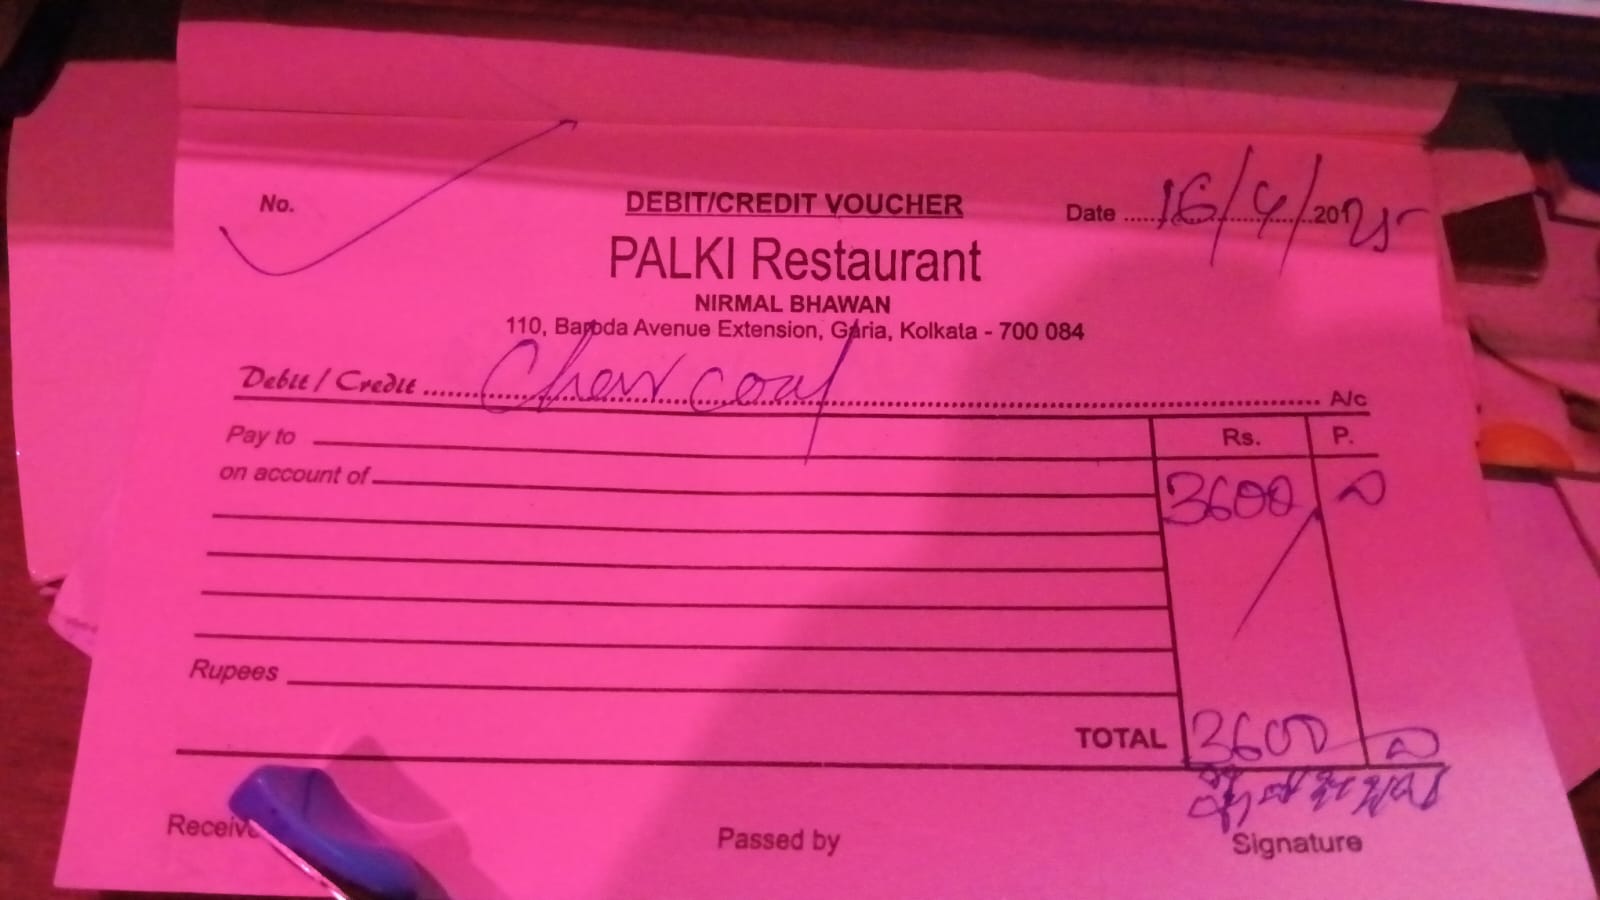 No.
DEBIT/CREDIT VOUCHER
Date 16/4/20125
PALKI Restaurant
NIRMAL BHAWAN
110, Baroda Avenue Extension, Garia, Kolkata - 700 084
Debit / Credit Charcoal A/c
Rs. P.
Pay to
on account of
3600
Rupees
TOTAL 3600
Receive
Passed by
Signature